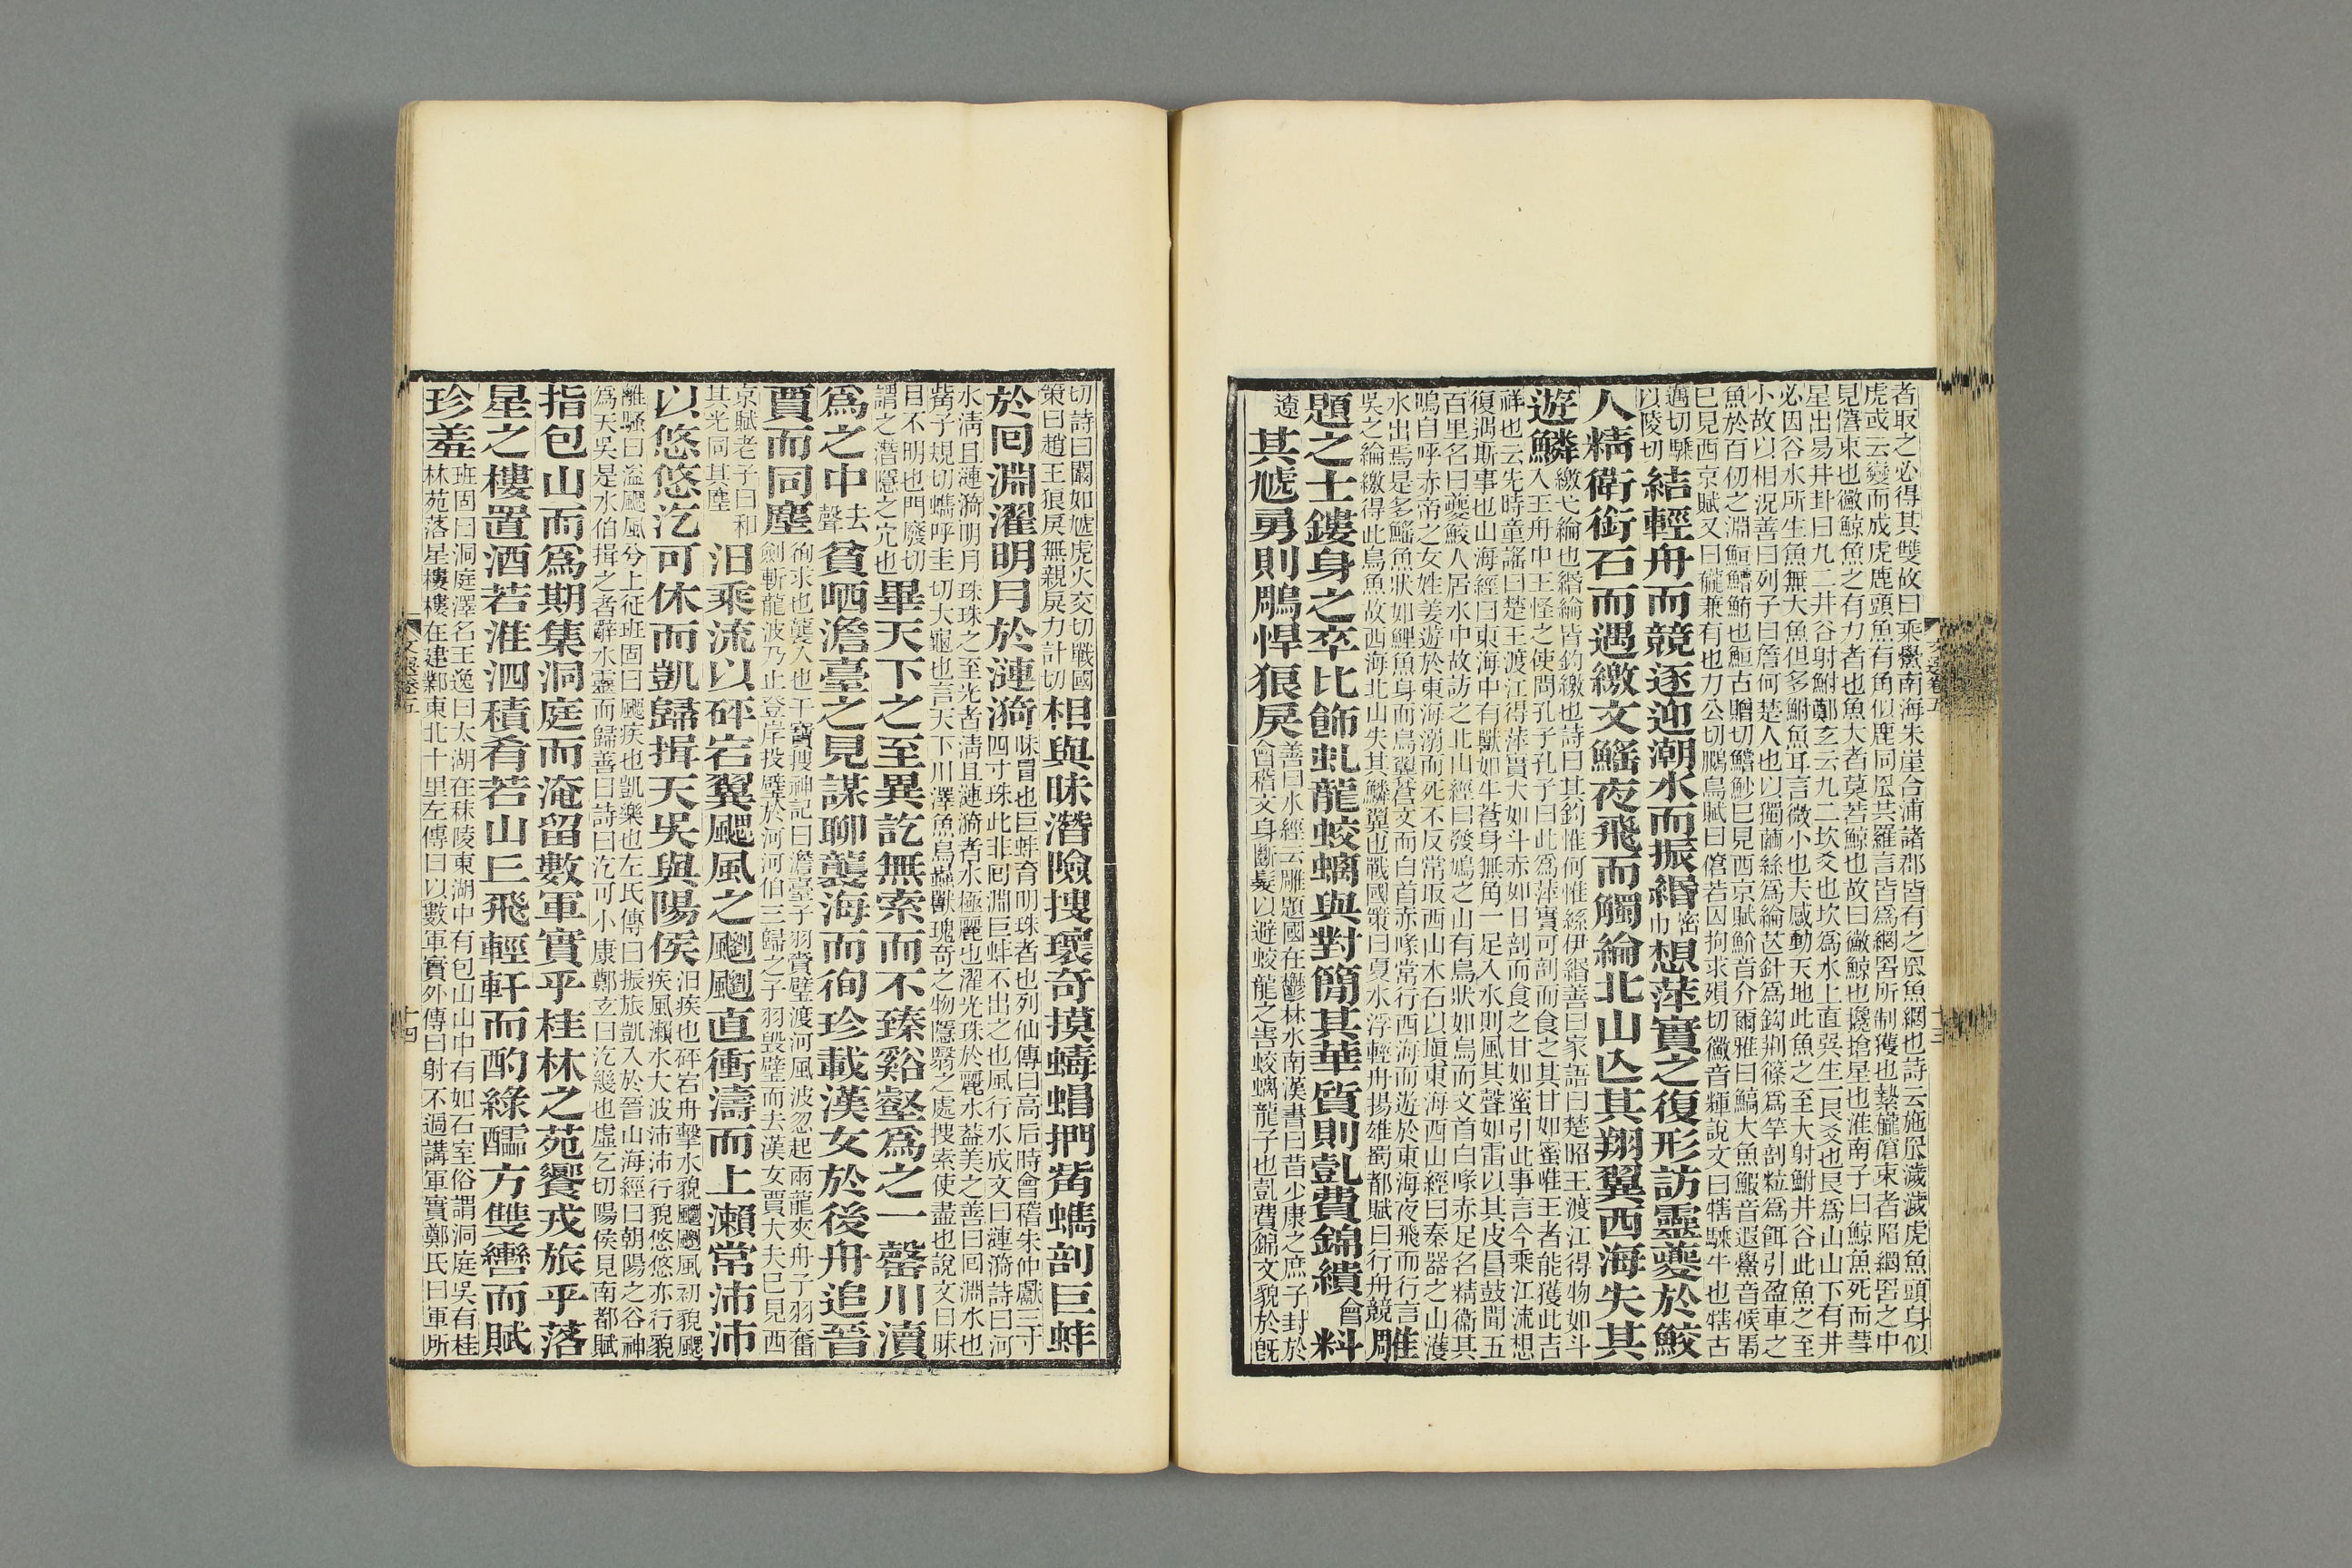 者取之必得其雙故曰乘鱟南海朱崖合浦諸郡皆有之罛魚網也詩云施罛濊濊虎魚頭身似
虎或云變而成虎鹿頭魚有角似鹿罔罛共羅言皆爲網罟所制獲也縶儱僒束者陷網罟之中
見僒束也徽鯨魚之有力者也魚大者莫若鯨也故曰徽鯨也欃搶星也淮南子曰鯨魚死而彗
星出易井卦曰九二井谷射鮒鄭玄云九二坎爻也坎爲水上直巽生一艮爻也艮爲山山下有井
必因谷水所生魚無大魚但多鮒魚耳言微小也夫感動天地此魚之至大射鮒井谷此魚之至
小故以相況善曰列子曰詹何楚人也以獨繭絲爲綸芒針爲鈎荆篠爲竿剖粒爲餌引盈車之
魚於百仞之淵鮪也古贈切鱨魦巳見西京賦魪音介爾雅曰鰝大魚鰕音遐鱟音候罛
巳見西京賦又曰儱兼有也力公切鵩鳥賦曰僒若囚拘求殞切徽音輝說文曰犗騬牛也犗古
邁切騬以陵切結輕舟而競逐迎潮水而振緡密巾想萍實之復形訪靈夔於鮫
人精衛銜石而遇繳文鰩夜飛而觸綸北山亾其翔翼西海失其
遊鱗繳弋綸也緡綸皆釣繳也詩曰其釣惟何惟絲伊緡善曰家語曰楚昭王渡江得物如斗
入王舟中王怪之使問孔子孔子曰此爲萍實可剖而食之其甘如蜜唯王者能獲此吉
祥也云先時童謠曰楚王渡江得萍實大如斗赤如日剖而食之甘如蜜引此事言今乘江流想
復遇斯事也山海經曰東海中有獸如牛蒼身無角一足入水則風其聲如雷以其皮冒鼓聞五
百里名曰夔鮫人居水中故訪之北山經曰發鳩之山有鳥狀如烏而文首白喙赤足名精衞其
鳴自呼赤帝之女姓姜遊於東海溺而死不反常取西山木石以塡東海西山經曰秦器之山濩
水出焉是多鰩魚狀如鯉魚身而鳥翼蒼文而白首赤喙常行西海而遊於東海夜飛而行言
吳之綸繳得此鳥魚故西海北山失其鱗翼也戰國策曰夏水浮輕舟揚雄蜀都賦曰行舟競
雕
題之士鏤身之卒比飾虯龍蛟螭與對簡其華質則亄費錦繢會料
其虓勇則鵰悍狼戾善曰水經云雕題國在鬱林水南漢書曰昔少康之庶子封於
會稽文身斷髮以避蛟龍之害蛟螭龍子也亄費錦文貌於旣
文選卷五
十三
切詩曰闞如虓虎火交切戰國
策曰趙王狼戾無親戾力計切相與昧潛險搜瓌奇摸蝳蝐捫觜蠵剖巨蚌
於回淵濯明月於漣漪昧冒也巨蚌育明珠者也列仙傳曰高后時會稽朱仲獻三寸
四寸珠此非回淵巨蚌不出之也風行水成文曰漣漪詩曰河
水淸且漣漪明月珠珠之至光者淸且漣漪者水極麗也濯光珠於麗水益美之善曰回淵水也
觜子規切蠵呼圭切大龜也言天下川澤魚鳥蟲獸瑰奇之物隱翳之處搜索使盡也說文曰昧
目不明也門廢切
謂之潛隱之穴也畢天下之至異訖無索而不臻谿壑爲之一罄川瀆
爲之中去聲貧哂澹臺之見謀聊襲海而徇珍載漢女於後舟追晉
賈而同塵徇求也襲入也干寶搜神記曰澹臺子羽賫璧渡河風波忽起兩龍夾舟子羽奮
劍斬龍波乃止登岸投璧於河河伯三歸之子羽毀璧而去漢女賈大夫巳見西
京賦老子曰和
其光同其塵汩乘流以砰宕翼颸風之䬟䬟直衝濤而上瀨常沛沛
以悠悠汔可休而凱歸揖天吳與陽侯汩疾也砰宕舟擊水貌䬟䬟風初貌颸
疾風瀨水大波沛沛行貌悠悠亦行貌
離騷曰溘颸風兮上征班固曰颸疾也凱樂也左氏傳曰振旅凱入於晉山海經曰朝陽之谷神
爲天吳是水伯揖之者辭水靈而歸善曰詩曰汔可小康鄭玄曰汔幾也虛乞切陽侯見南都賦
指包山而爲期集洞庭而淹留數軍實乎桂林之苑饗戎旅乎落
星之樓置酒若淮泗積肴若山丘飛輕軒而酌綠醽方雙轡而賦
珍羞班固曰洞庭澤名王逸曰太湖在秣陵東湖中有包山山中有如石室俗謂洞庭吳有桂
林苑落星樓樓在建鄴東北十里左傳曰以數軍實外傳曰射不過講軍實鄭氏曰軍所
文選卷五
十四